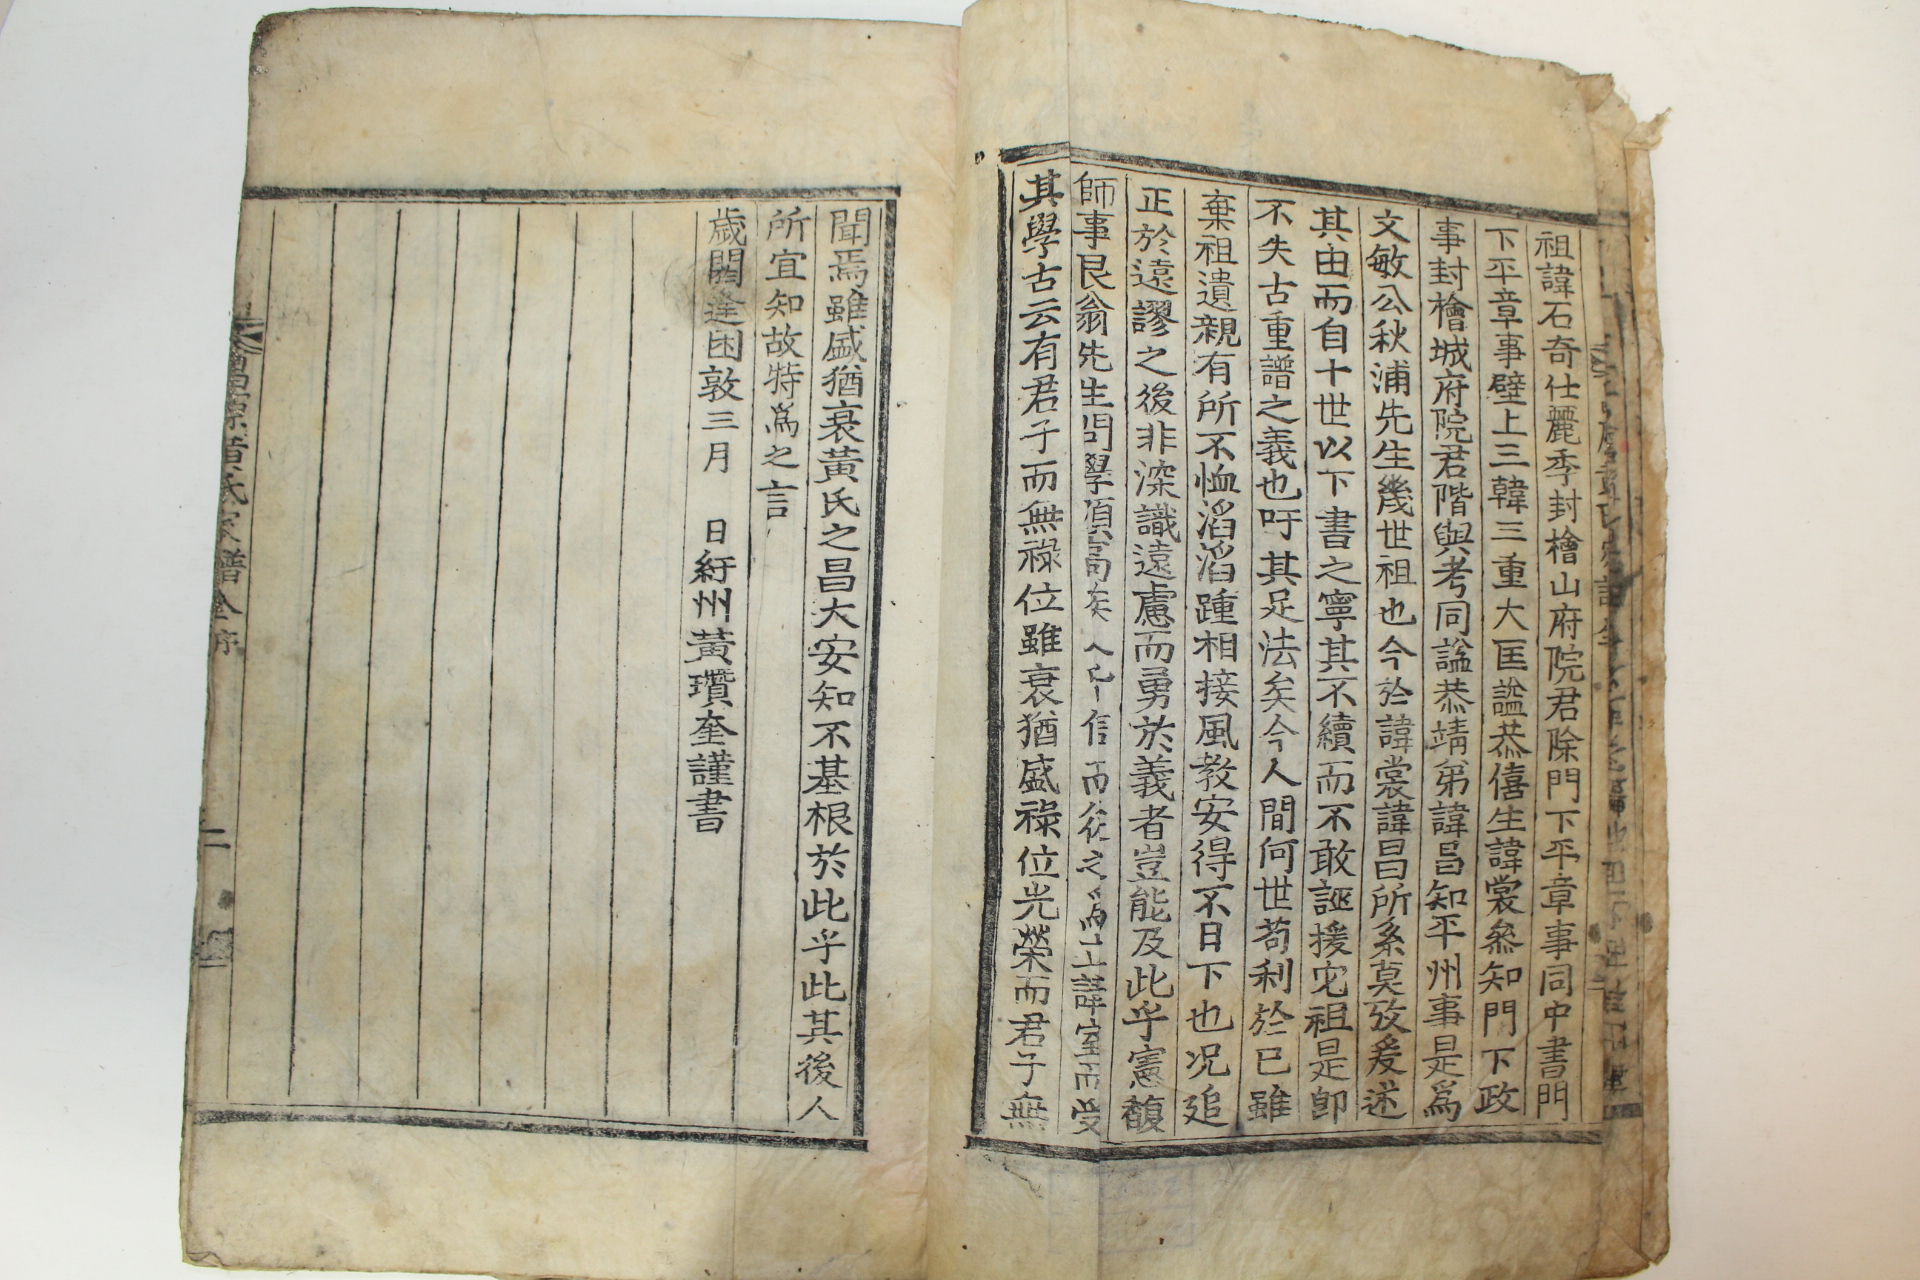 祖諱石奇仕麗季封檜山府院君除門下平章事同中書門
下平章事壁上三韓三重大匡謚恭僖生諱裳叅知門下政
事封檜城府院君階與考同謚恭靖弟諱昌知平州事是爲
文敏公秋浦先生幾世祖也今於諱裳諱昌所系莫攷爰述
其由而自十世以下書之寧其不續而不敢誣援宅祖是卽
不失古重譜之義也吁其足法矣今人間何世苟利於已雖
棄祖遺親有所不恤滔滔踵相接風敎安得不日下也况追
正於遠謬之後非深識遠慮而勇於義者豈能及此乎憲馥
師事艮翁先生問學頎高矣人信而從之爲士講室而受
其學古云有君子而無祿位雖衰猶盛祿位光榮而君子無
聞焉雖盛猶衰黃氏之昌大安知不基根於此乎此其後人
所宜知故特爲之言
歲閼逢困敦三月 日紆州黃瓚奎謹書
氏家譜全序
二